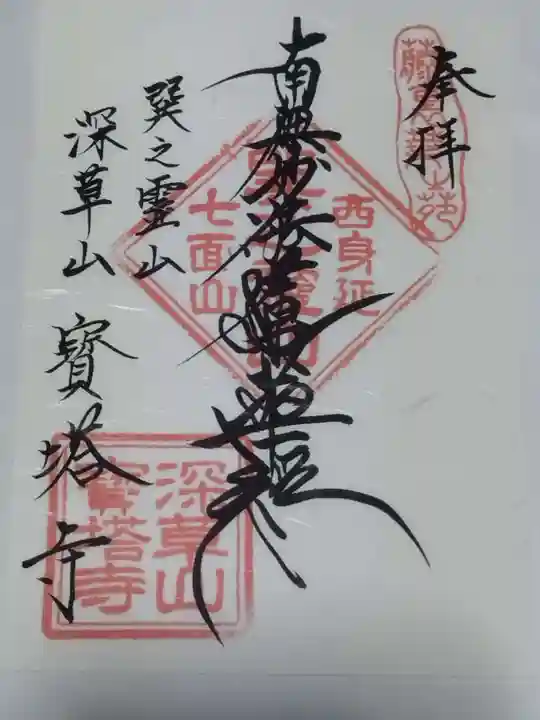 奉拝
南無妙法蓮華経
西身延
七面山
巽之霊山
深草山
寳塔寺
深草山
寳塔寺